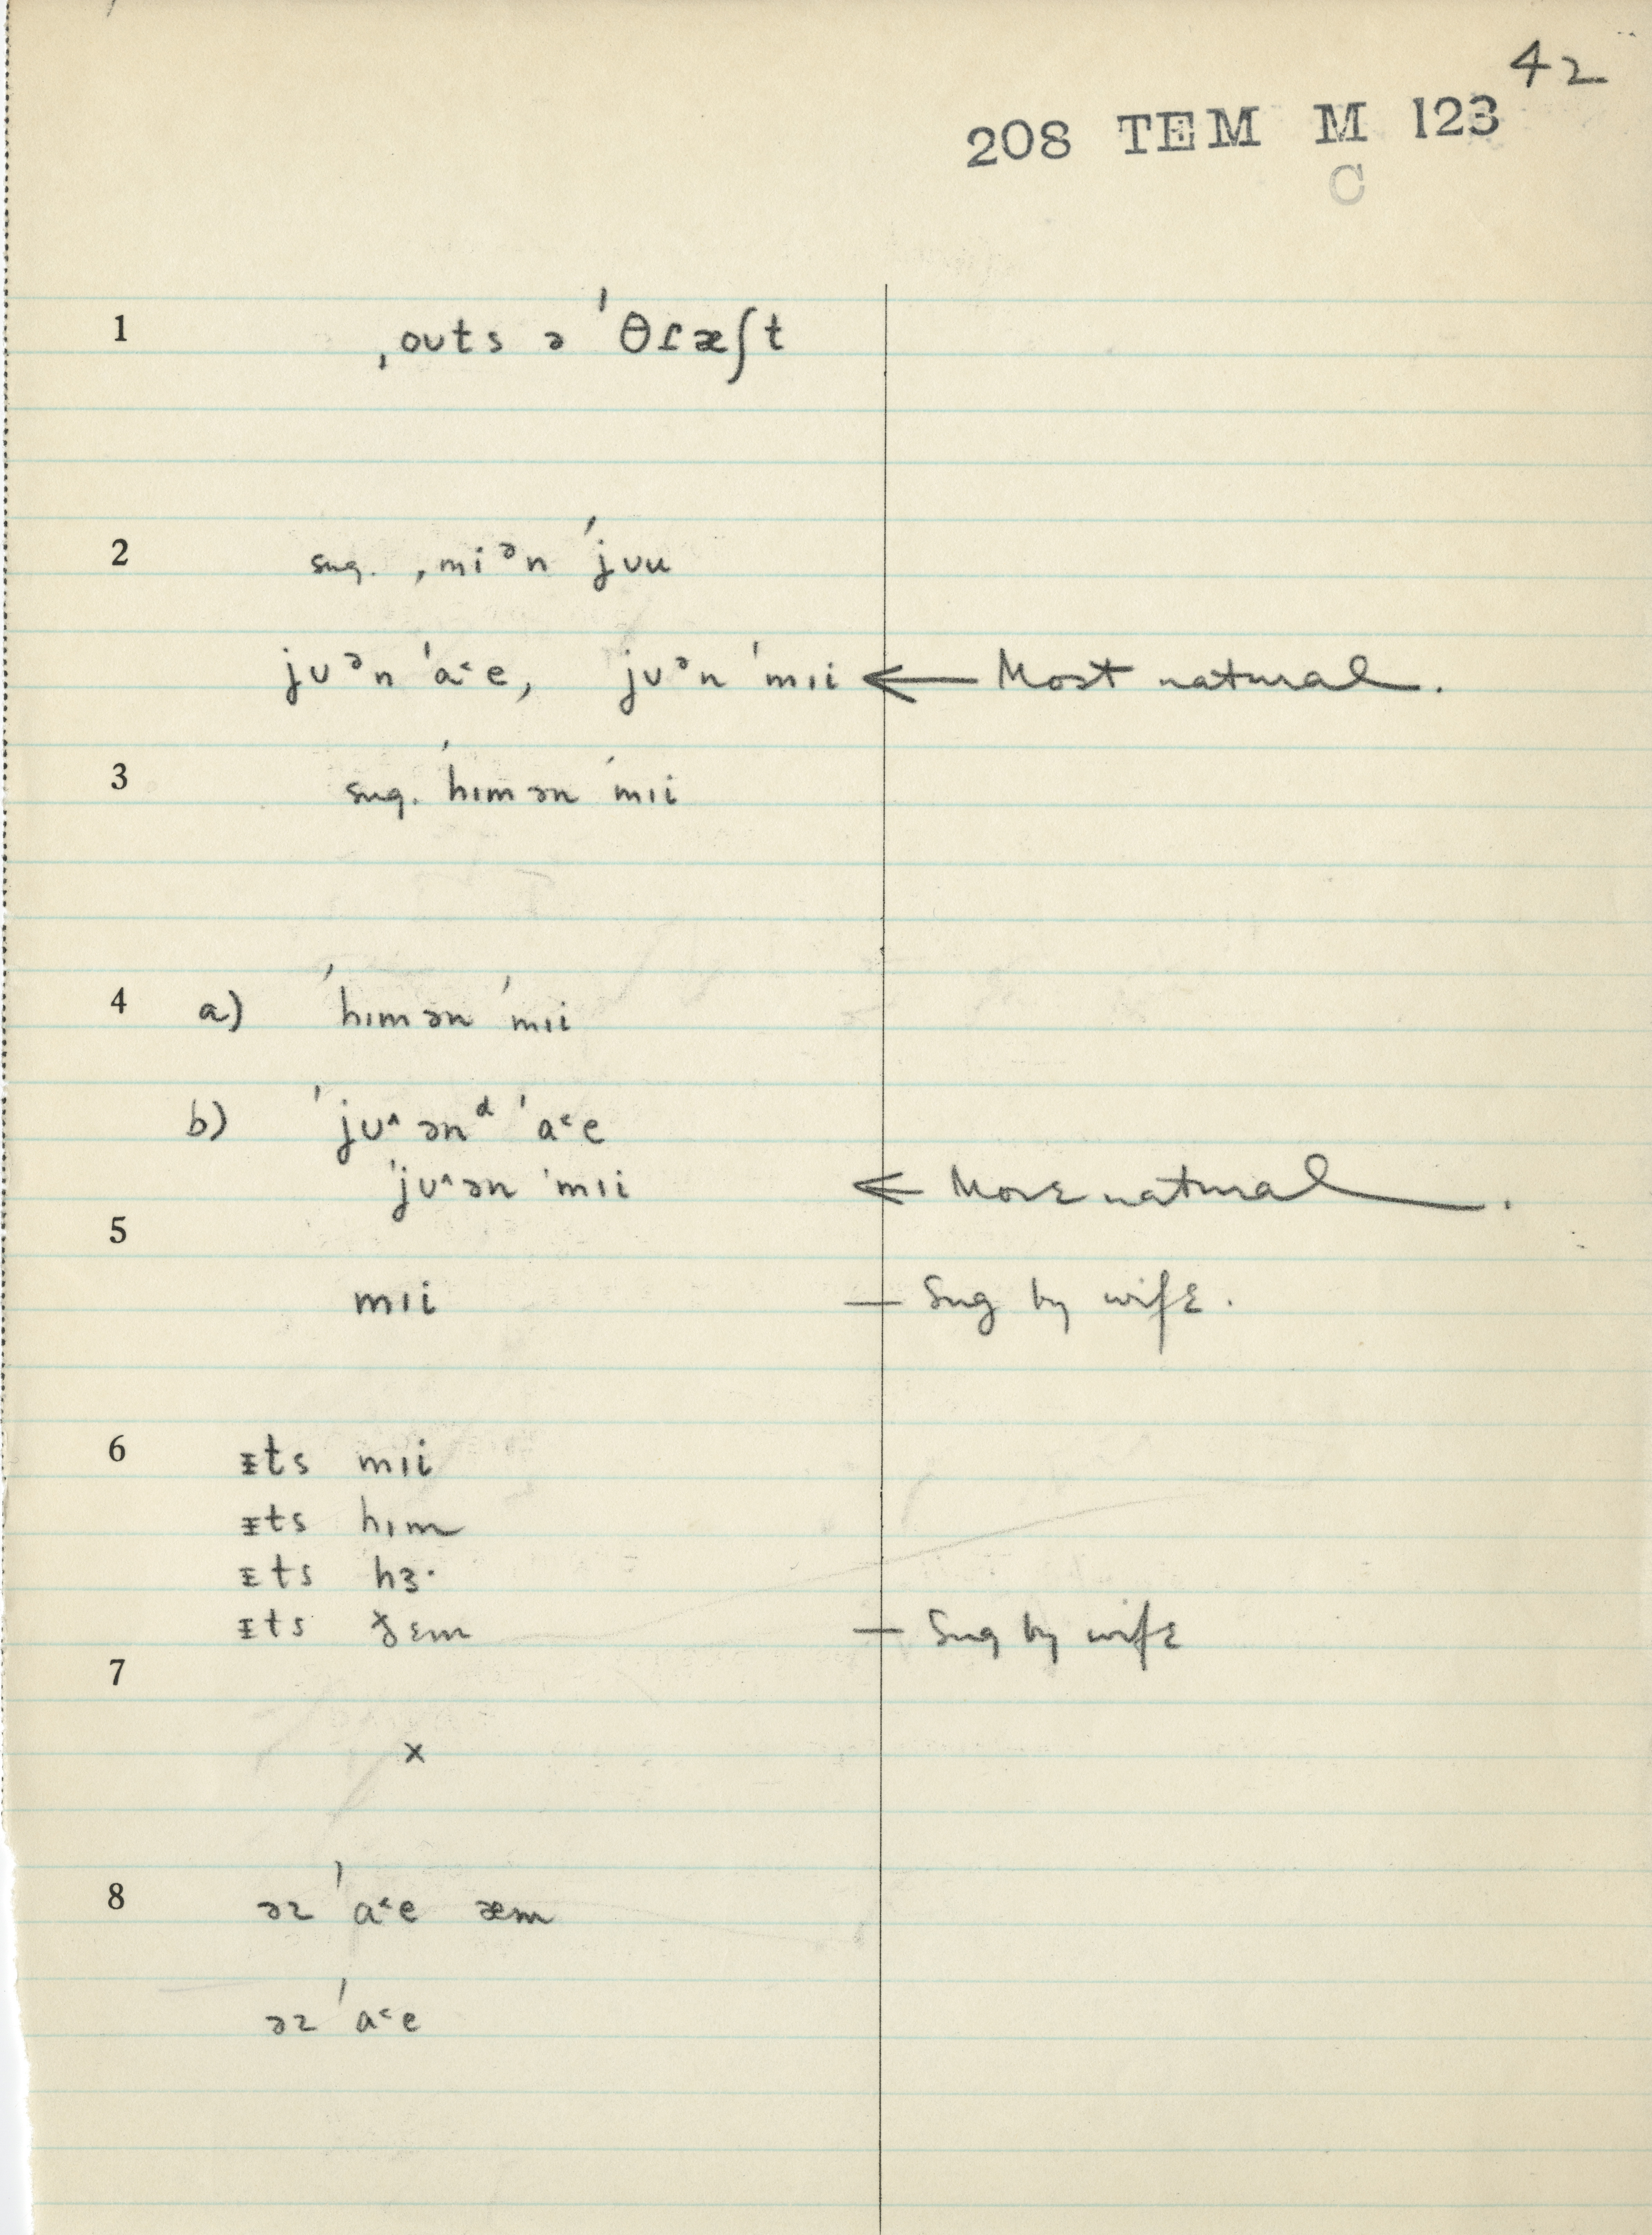 42
208 TEM M 123
C
1 ˌouts ə ˈθɾæʃt
2 sug. ˌmiᵊn ˈjʊu
jʊᵊn ˈa˂e, jʊᵊn ˈmɪi ← Most natural.
3 sug. ˈhɪmən ˈmɪi
4 a) ˈhɪmən ˈmɪi
b) ˈjʊ˄ənᵈ ˈa˂e
ˈjʊ˄ən ˈmɪi ← More natural.
5
mɪi — Sug by wife.
6 ɪts mɪi
ɪts hɪm
ɪts hɜ·
ɪts ðɛm — Sug by wife
7
x
8 əz ˈa˂e æm
əz ˈa˂e